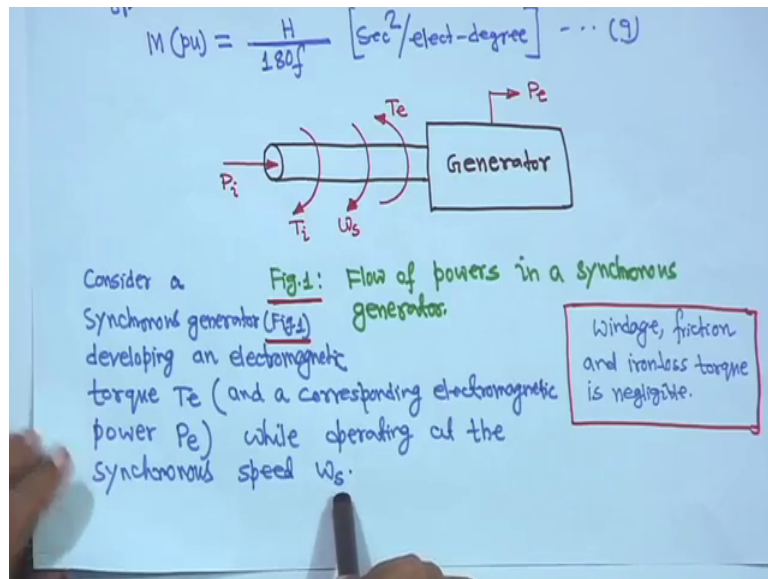 M(pu) = H/180f [Sec²/elect-degree] --- (9)
Te
Pe
Generator
Pi
Ti
ωs
Fig.1: Flow of powers in a synchronous
generator.
Consider a
Synchronous generator (Fig1)
developing an electromagnetic
torque Te (and a corresponding electromagnetic
power Pe) while operating at the
synchronous speed ωs.
Windage, friction
and ironloss torque
is negligible.